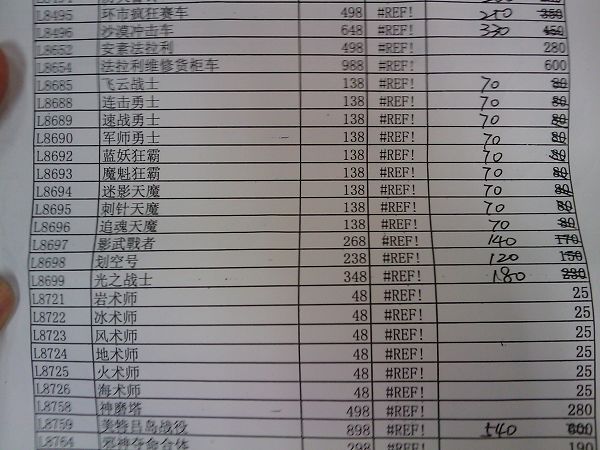 L8495 环市疯狂赛车 498 #REF! 250 350
L8496 沙漠冲击车 648 #REF! 330 450
L8652 安素法拉利 498 #REF! 280
L8654 法拉利维修货柜车 988 #REF! 600
L8685 飞云战士 138 #REF! 70 80
L8688 连击勇士 138 #REF! 70 80
L8689 速战勇士 138 #REF! 70 80
L8690 军师勇士 138 #REF! 70 80
L8692 蓝妖狂霸 138 #REF! 70 80
L8693 魔魁狂霸 138 #REF! 70 80
L8694 迷影天魔 138 #REF! 70 80
L8695 刺针天魔 138 #REF! 70 80
L8696 追魂天魔 138 #REF! 70 80
L8697 影武戰者 268 #REF! 140 170
L8698 划空号 238 #REF! 120 150
L8699 光之战士 348 #REF! 180 230
L8721 岩术师 48 #REF! 25
L8722 冰术师 48 #REF! 25
L8723 风术师 48 #REF! 25
L8724 地术师 48 #REF! 25
L8725 火术师 48 #REF! 25
L8726 海术师 48 #REF! 25
L8758 神磨塔 498 #REF! 280
L8759 美特吕岛战役 898 #REF! 540 600
L8764 邪神夺命合体 298 #REF! 190